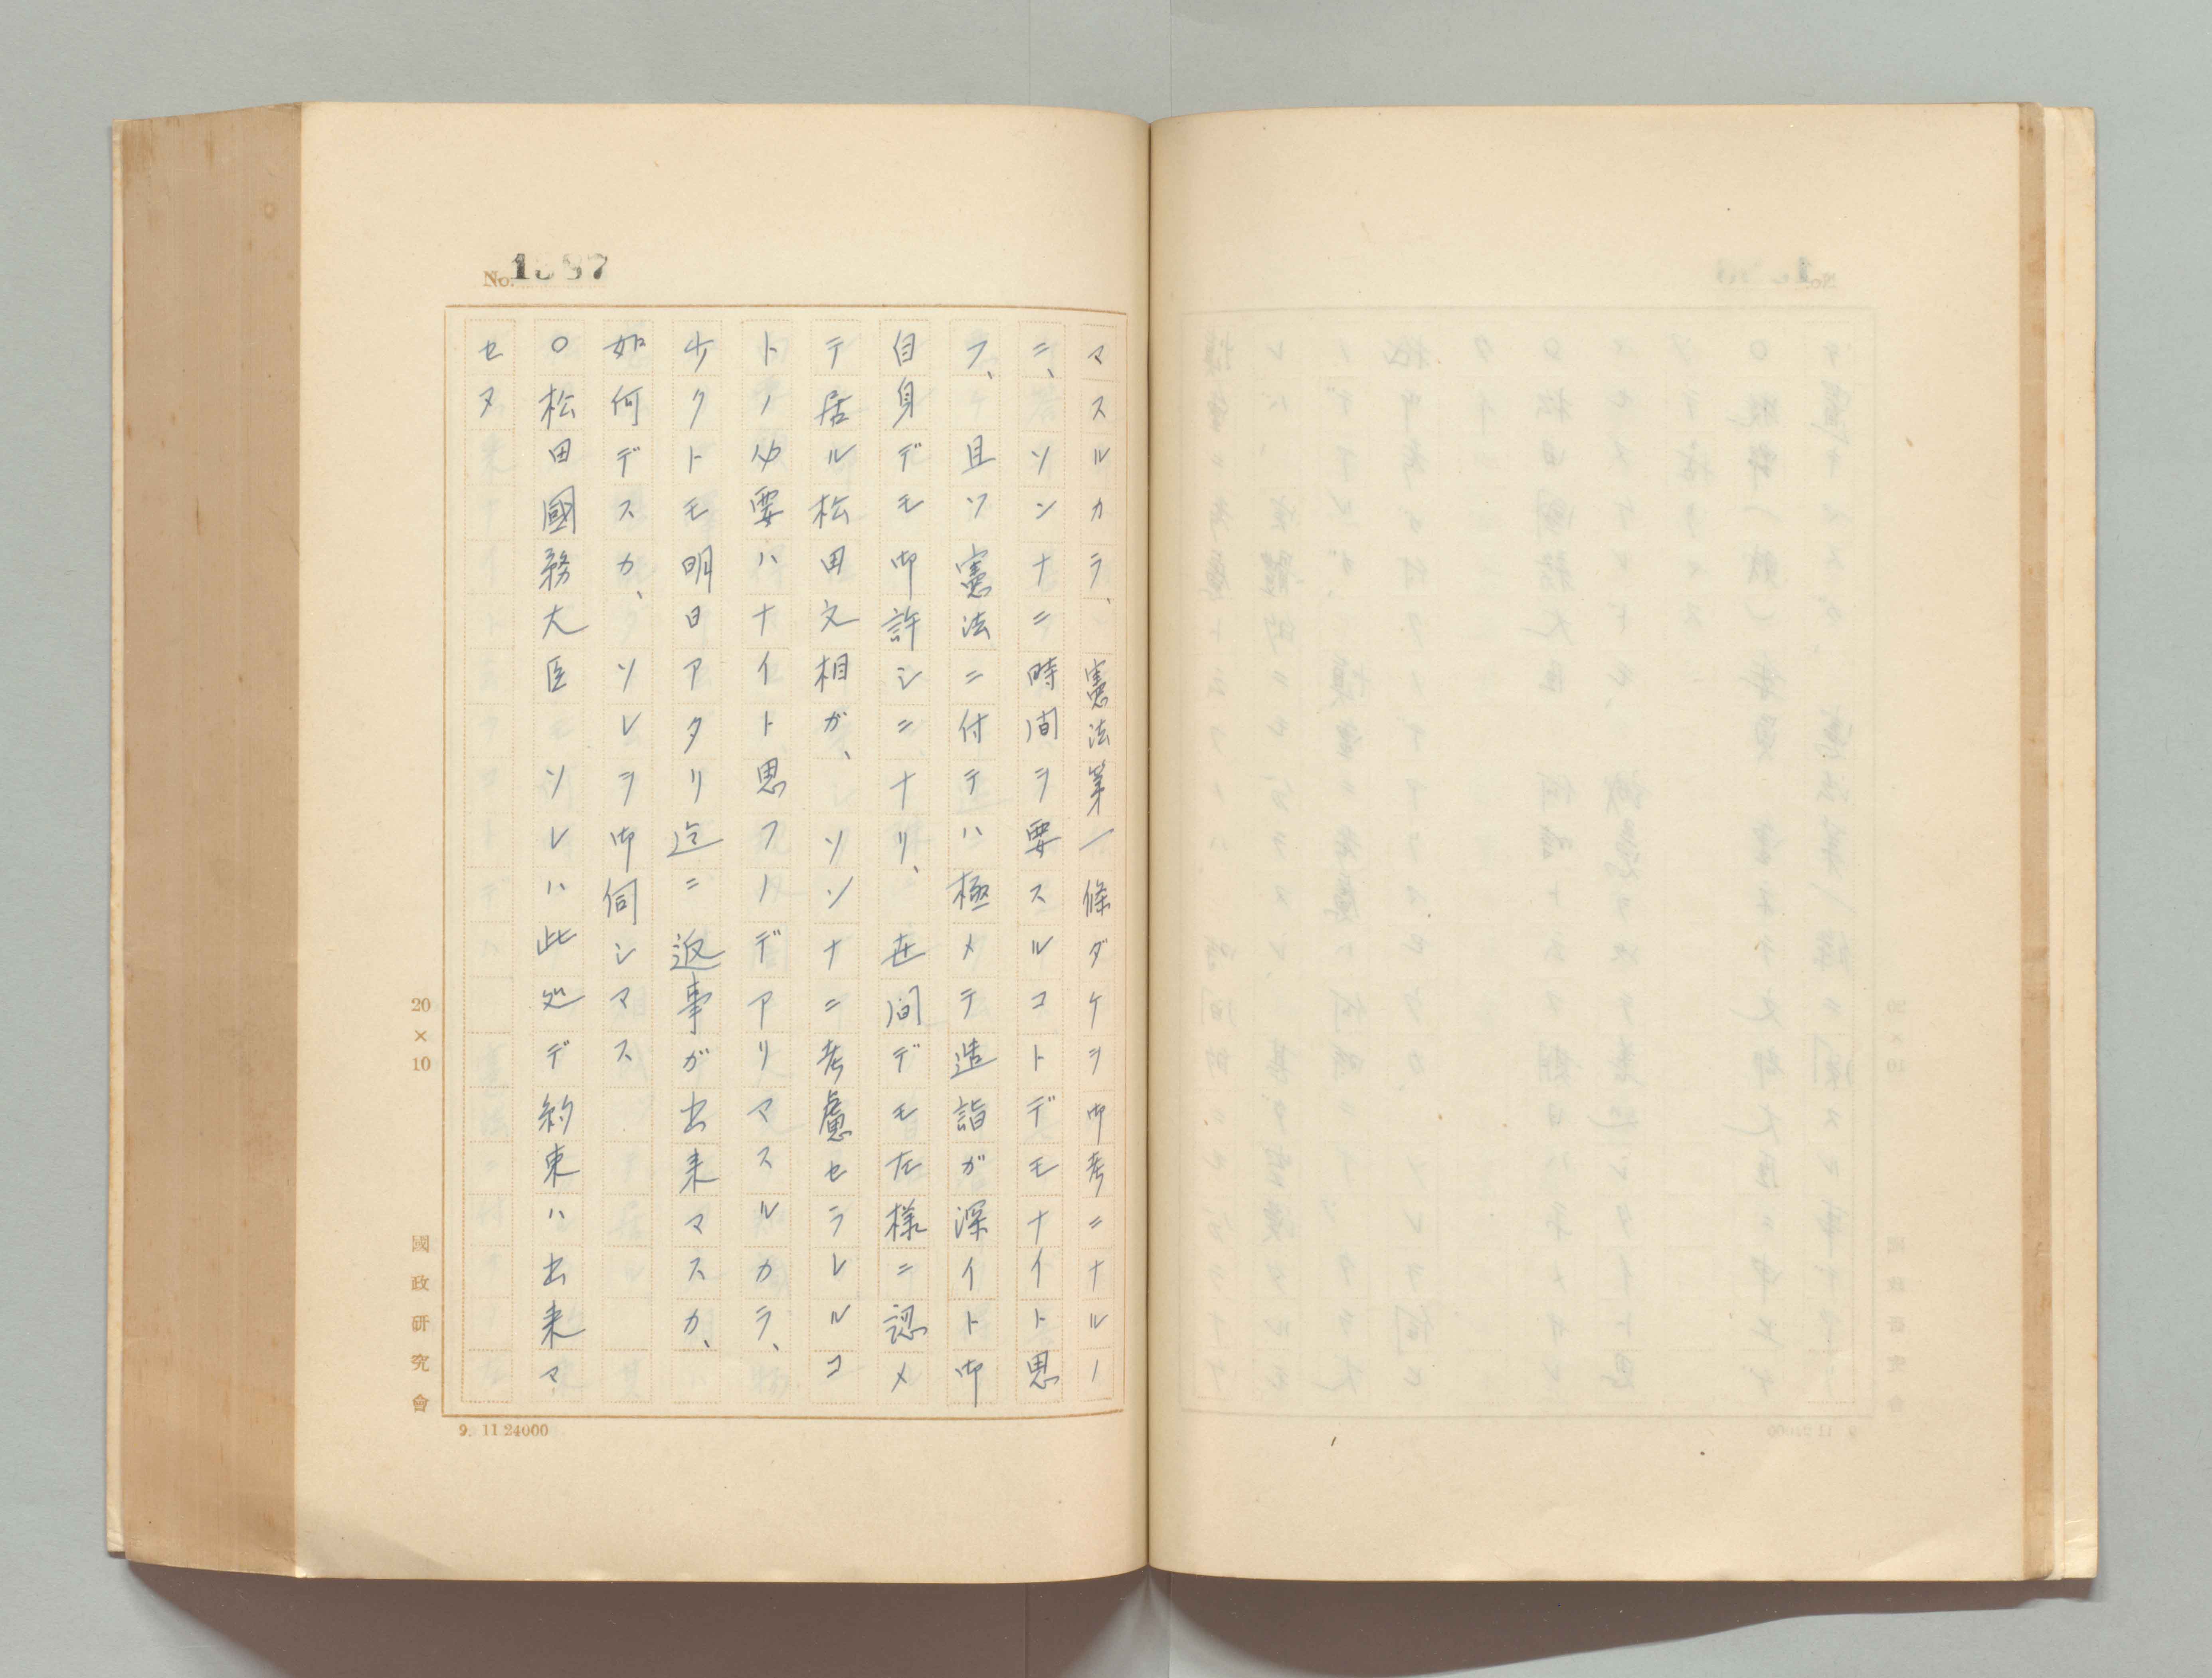 No.
マスルカラ、憲法第一條ダケヲ御考ニナルノ
ニ、ソンナニ時間ヲ要スルコトデモナイト思
フ、且ツ憲法ニ付テハ極メテ造詣ガ深イト御
自身デモ御許シニナリ、世間デモ左様ニ認メ
テ居ル松田文相ガ、ソンナニ考慮セラレルコ
トノ必要ハナイト思フノデアリマスルカラ、
少クトモ明日アタリ迄ニ返事ガ出来マスカ、
如何デスカ、ソレヲ御伺シマス
○松田國務大臣 ソレハ此処デ約束ハ出来マ
セヌ
20×10
國政研究會
9. 11 24000